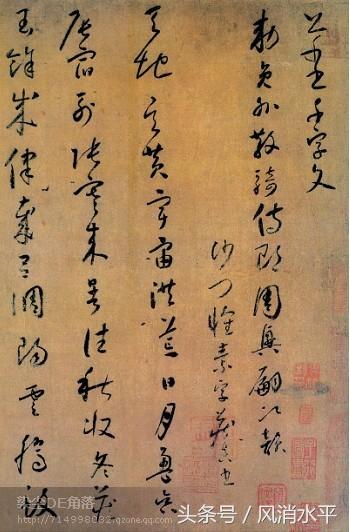 千字文
勅員外散騎侍郎周興嗣次韻
沙門懷素字藏真書
天地玄黃宇宙洪荒日月盈昃
辰宿列張寒來暑往秋收冬藏
閏餘成律歲呂調陽雲騰致
DE角落
http://714998032.qzone.qq.com
头条号 / 风消水平